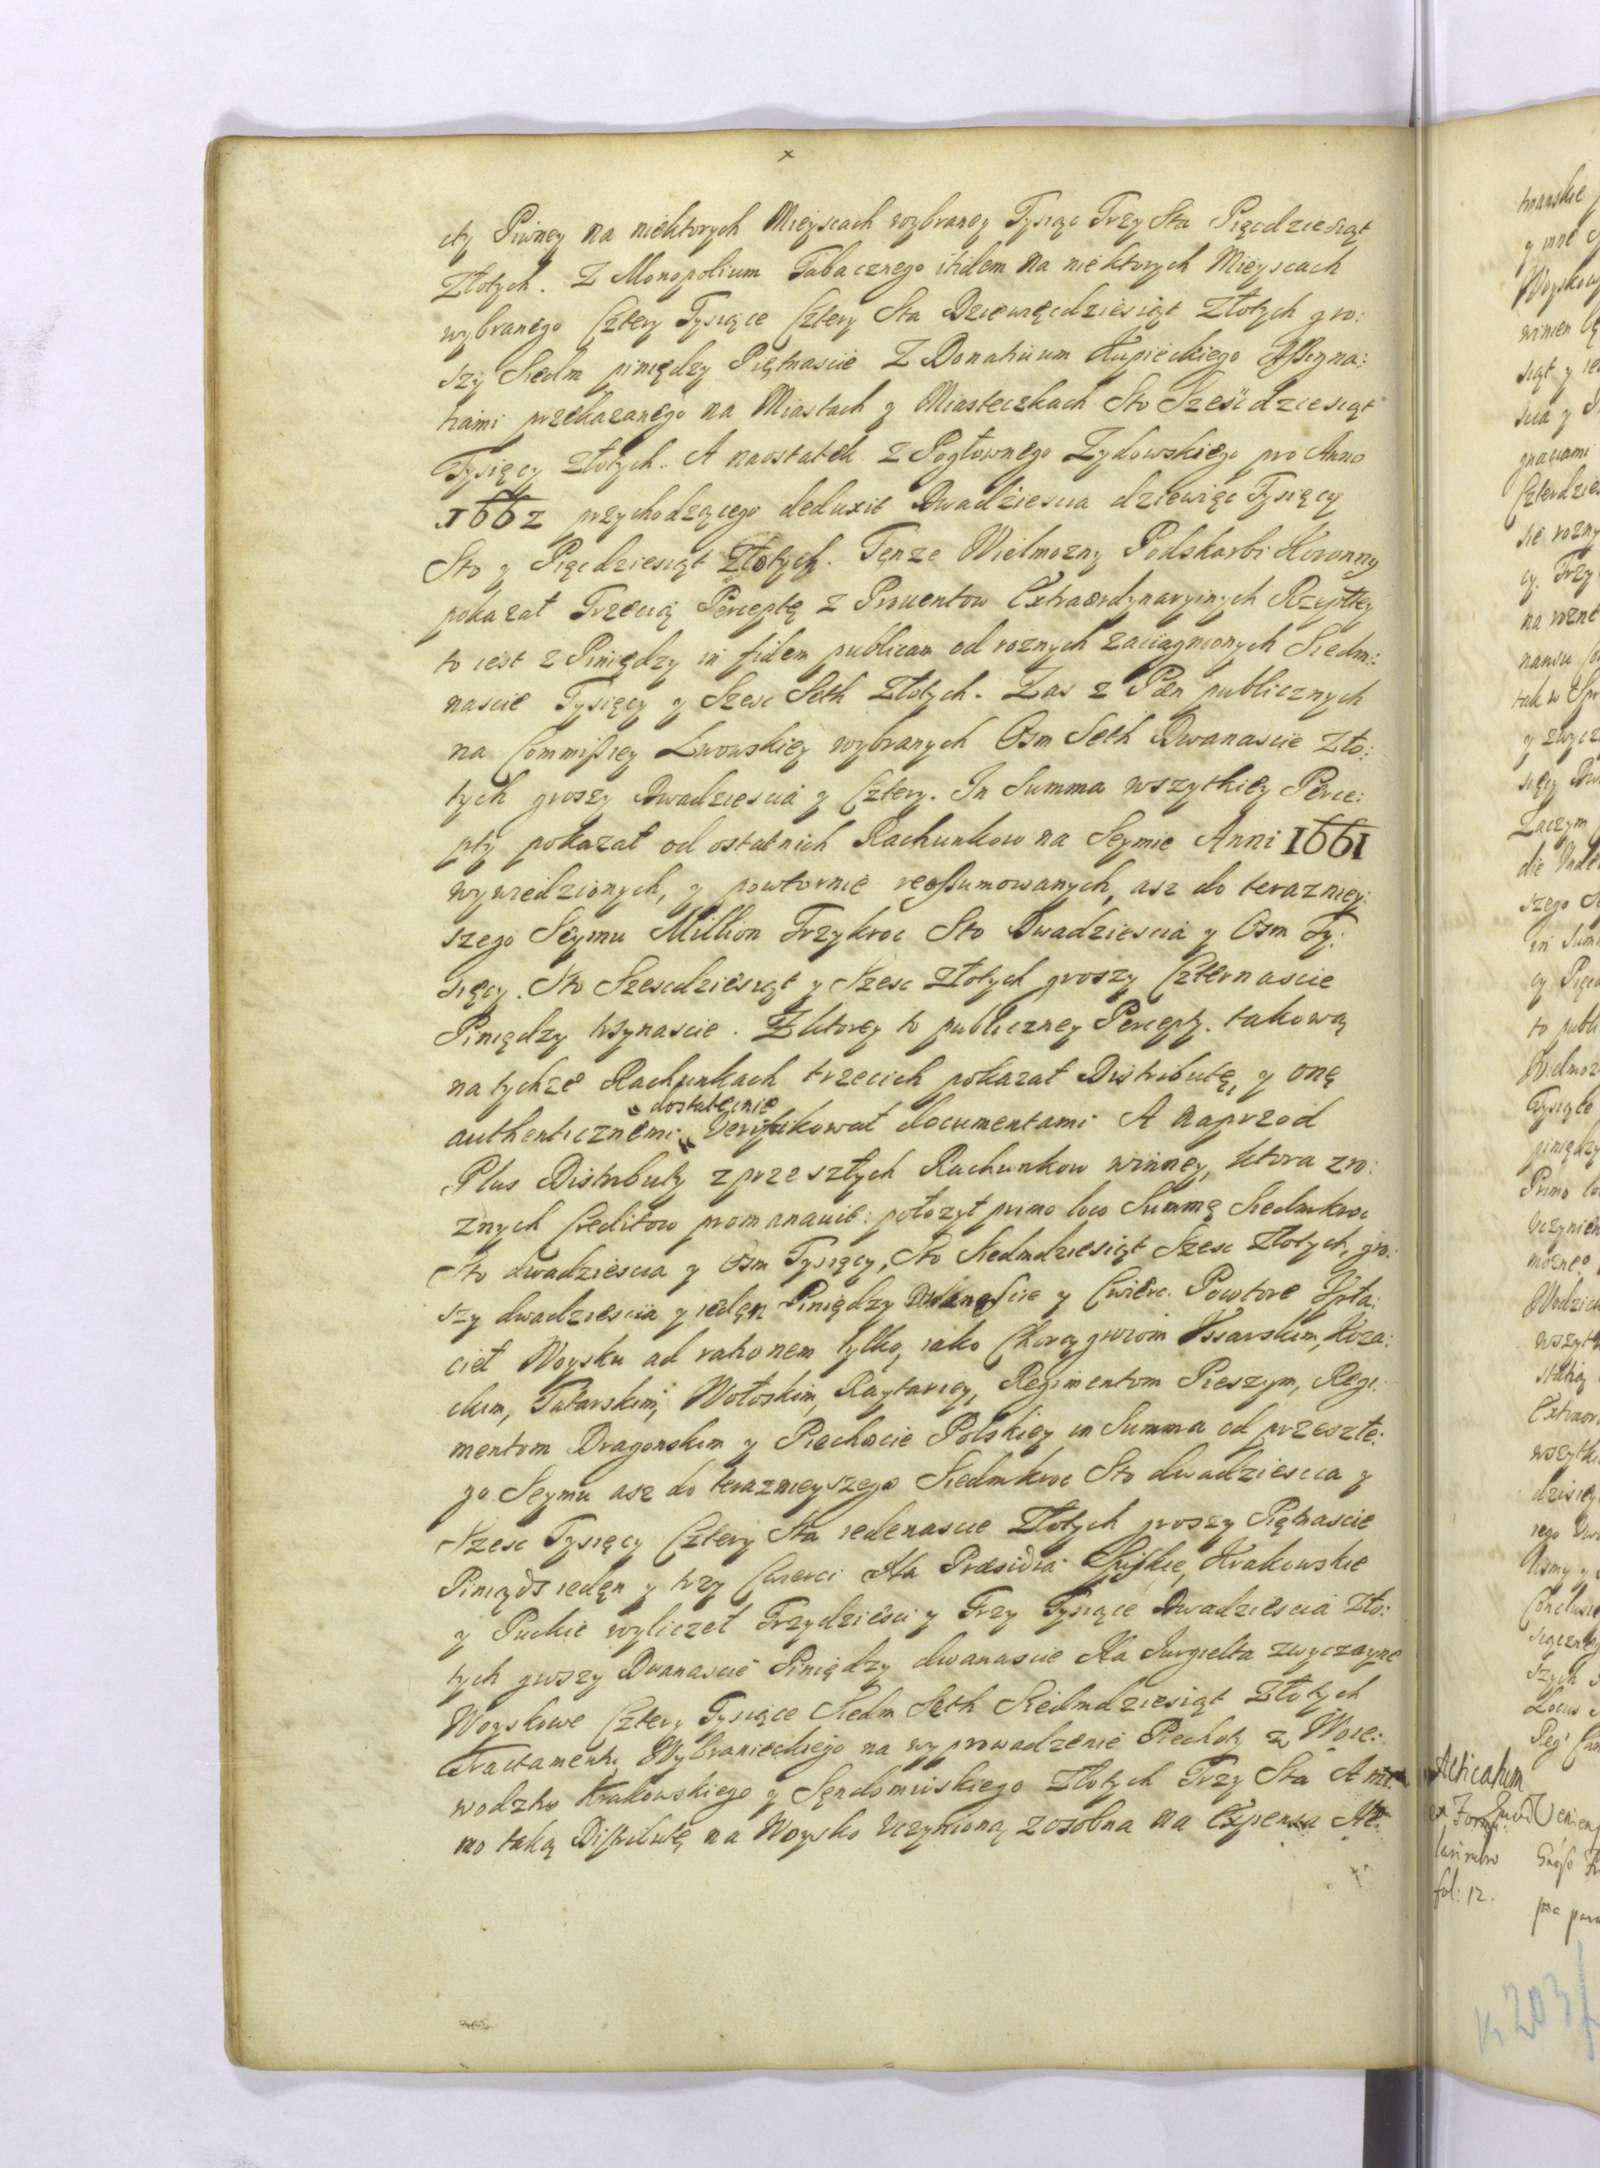 cty Piwney na niektorych Mieyscach wybraney Tysiąc Trzy Sta Pięcdziesiąt
Złotych. Z Monopolium Tabacznego itidem na niektorych Mieyscach
wybranego Cztery Tysiące Cztery Sta Dziewięcdziesiąt Złotych gro:
szy Siedm pieniędzy Piętnascie Z Donativum Kupieckiego Assigna:
tiami przekazanego na Miastach y Miasteczkach Sto Szescdziesiąt
Tysięcy Złotych. A naostatek z Pogłownego Zydowskiego pro Anno
1662 przychodzącego deduxit Dwadziescia dziewięc Tysięcy
Sto y Pięcdziesiąt Złotych. Tenze Wielmozny Podskarbi Koronny
pokazał Trzecią Perceptę z Prouentow Extraordynaryinych Rzyptey
to iest z Piniędzy in fidem publicam od roznych zaciągnionych Siedm:
nascie Tysięcy y Szesc Seth Złotych. Zas z Pæn publicznych
na Commissiey Lwowskiey wybranych Osm Seth Dwanascie Zło:
tych groszy Dwadziescia y Cztery. In Summa wszytkiey Perce:
pty pokazał od ostatnich Rachunkow na Seymie Anni 1661
wywiedzionych, y powtornie reassumowanych, asz do terazniey:
szego Seymu Million Trzykroc Sto Dwadziescia y Osm Ty:
sięcy. Sto Szescdziesiąt y Szesc Złotych groszy Czternascie
Piniędzy trzynascie. Z ktorey to publiczney Percepty. takową
na tychze Rachunkach trzecich pokazał Distributę, y onę
authenticznemi dostatecznie Veryfikował documentami A naprzod
Plus Distributy z przeszłych Rachunkow winney, ktora zro:
znych Creditow promanauit: połozył primo loco Summę Siedmkroc
Sto dwadziescia y Osm Tysięcy, Sto Siedmdziesiąt Szesc Złotych, gro:
szy dwadziescia y ieden Piniędzy Dwanascie y Cwierc. Powtore Zpła:
cieł Woysku ad rationem tylko, iako Chorągwiom Vssarskim, Koza:
ckim, Tatarskim, Wołoskim, Raytariey, Regimentom Pieszym, Regi:
mentom Dragonskim y Piechocie Polskiey in Summa od przeszłe:
go Seymu asz do teraznieyszego Siedmkroc Sto dwadziescia y
Szesc Tysięcy Cztery Sta iedenascie Złotych groszy Piętnascie
Piniądz ieden y trzy Cwierci Na Præsidia Spiskie, Krakowskie
y Puckie wyliczeł Trzydziesci y Trzy Tysiące Dwadziescia Zło:
tych groszy Dwanascie Piniędzy dwanascie Na Jurgielta zwyczayne
Woyskowe Cztery Tysiące Siedm Seth Siedmdziesiąt Złotych
Tractamentu Wybranieckiego na wyprowadzenie Piechoty z Woie:
wodztw Krakowskiego y Sendomirskiego Złotych Trzy Sta A
mo taką Distributę na Woysko Vczynioną zosobna na Expensa
Acticatum
fol: 12.